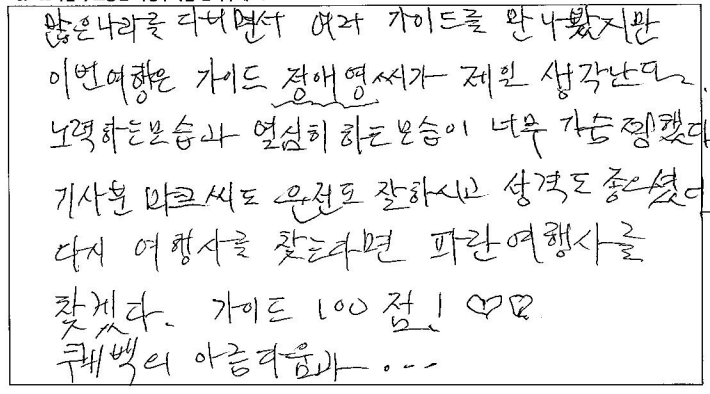 많은나라를 다니면서 여러 가이드를 만나봤지만
이번여행은 가이드 정애영씨가 제일 생각난다.
노력하는모습과 열심히 하는모습이 너무 가슴 찡했다
기사분 마크씨도 운전도 잘하시고 성격도 좋으셨다
다시 여행사를 찾는다면 파란여행사를
찾겠다. 가이드 100점! ♡♡
쿼백의 아름다움과 ....